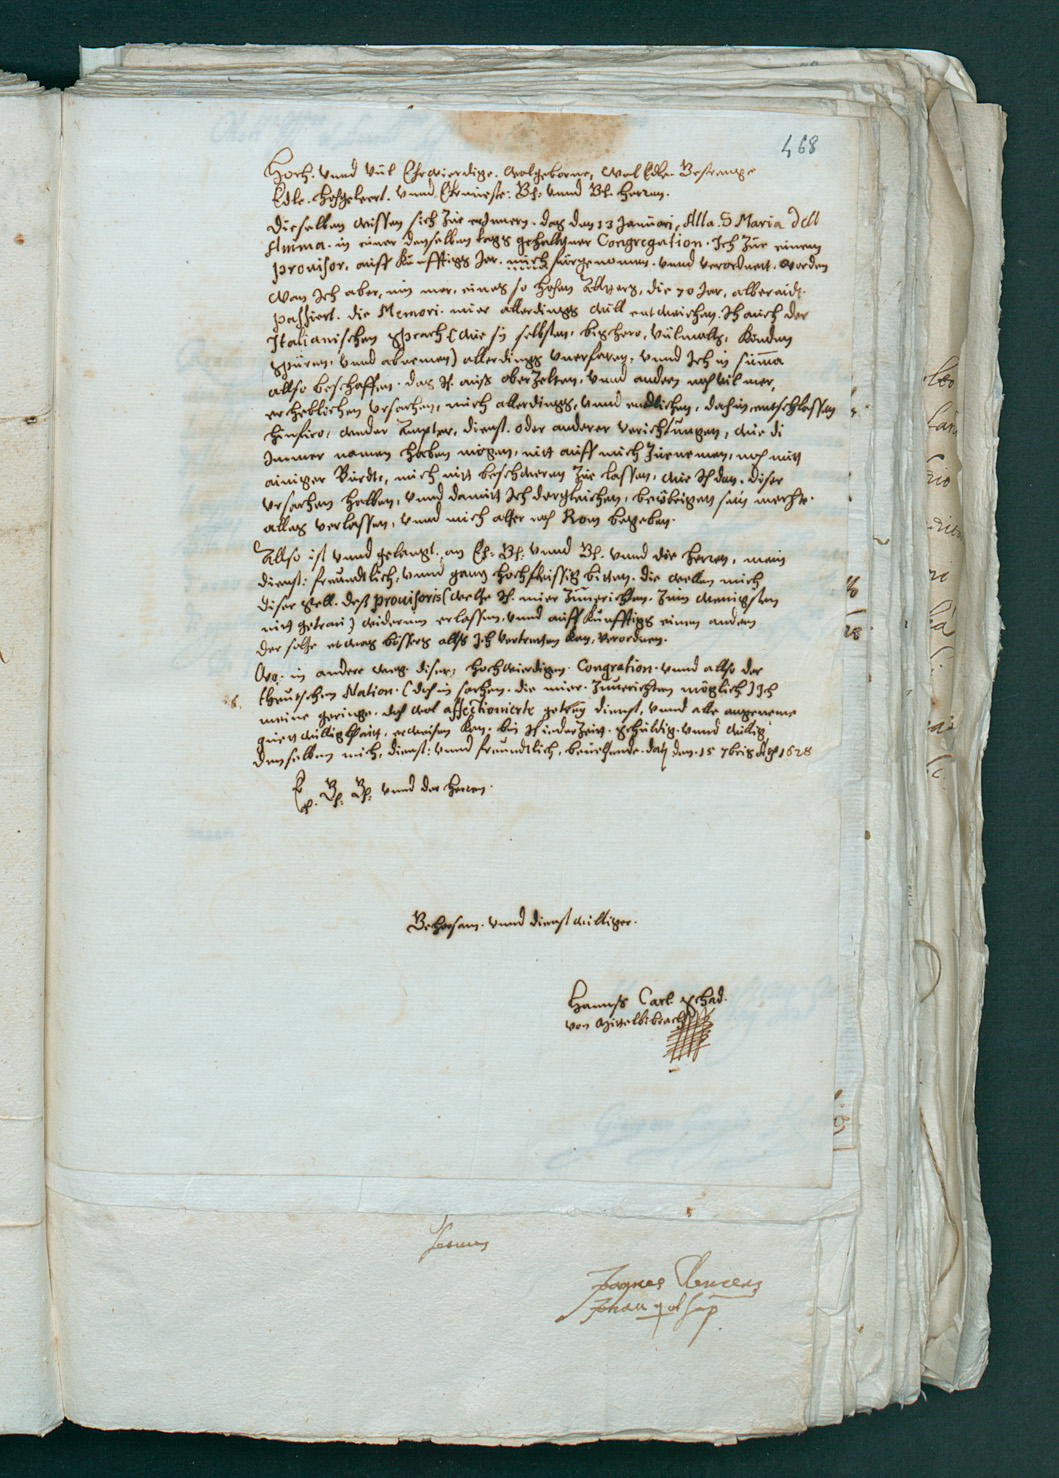 468
Hoch. vnnd vül Ehrwierdige. wolgeborne, Wol Edle Gestrenge
Edle. Hochgeleert. vnnd Ehrnueste. G: vnnd G: Herren.
Dieselben wissen sich Zue erInnern. das den 13 Januari, Alla. S Maria dell
Anima. in einer denselben tags gehaltner Congregation. Ich Zue einem
provisor, auff Künfftigs Jar. mich fürgenomen. vnnd verordnet. worden
Wan Ich aber, nun mer, eines so hohen Alters, die 70 Jar, alberaidt.
passiert. die Memori. mier allerdings will entweichen. Ich auch der
Italianischen sprach (wie sy selbsten, bisshero, vülmals, Könden
spüren, vnnd abnemen) allerdings vnerfaren, vnnd Ich in summa
allso beschaffen. das Ich auss oberZelten, vnnd andern noch vil mer,
erheblichen vrsachen, mich allerdings, vnnd endtlichen, dahin entschlossen
hinfiro, weder Empter, dienst. oder anderer verichtungen, wie di
Immer namen haben mögen, nit auff mich Zuenemen, noch mit
ainiger Bürdte, mich nit beschweren Zue lassen, wie Ich dan. diser
vrsachen halben, vnnd damit Ich dergleichen, beriebrigen sein mechte.
alles verlassen, vnnd mich alher nach Rom begeben.
Allso ist vnnd gelangt. an E: G: vnnd G: vnnd die Herren, mein
dienst: freundtlich, vnnd gantz hochfleissig bitten. die wellen mich
diser stell. dess provisoris (welche Ich mier Zuuerrichten. Zum wenigsten
nit getraw) widerumb erlassen, vnnd auff Künfftigs einen andern
der solche etwas bössers alls Ich vertretten kan, verordnen.
Wo. in andere weg. diser, Hochwierdigen. Congration. vnnd allso der
theutschen Nation. (doch in sachen. die mier. Zuuerichten möglich) Ich
meine geringe. doch wol affectionierte getrew dienst, vnnd alle angeneme
guetwilligkhait, erweisen kan. bin Ich iederZeit. schuldig. vnnd willig,
denselben mich, dienst: vnnd freundtlich, beuelhende. datum den. 15 7bris Aº 1628
E. G. G: vnnd der Herren.
Gehorsam. vnnd dienstwilliger.
Hannss Carl. Schad.
von Mittelbibrach